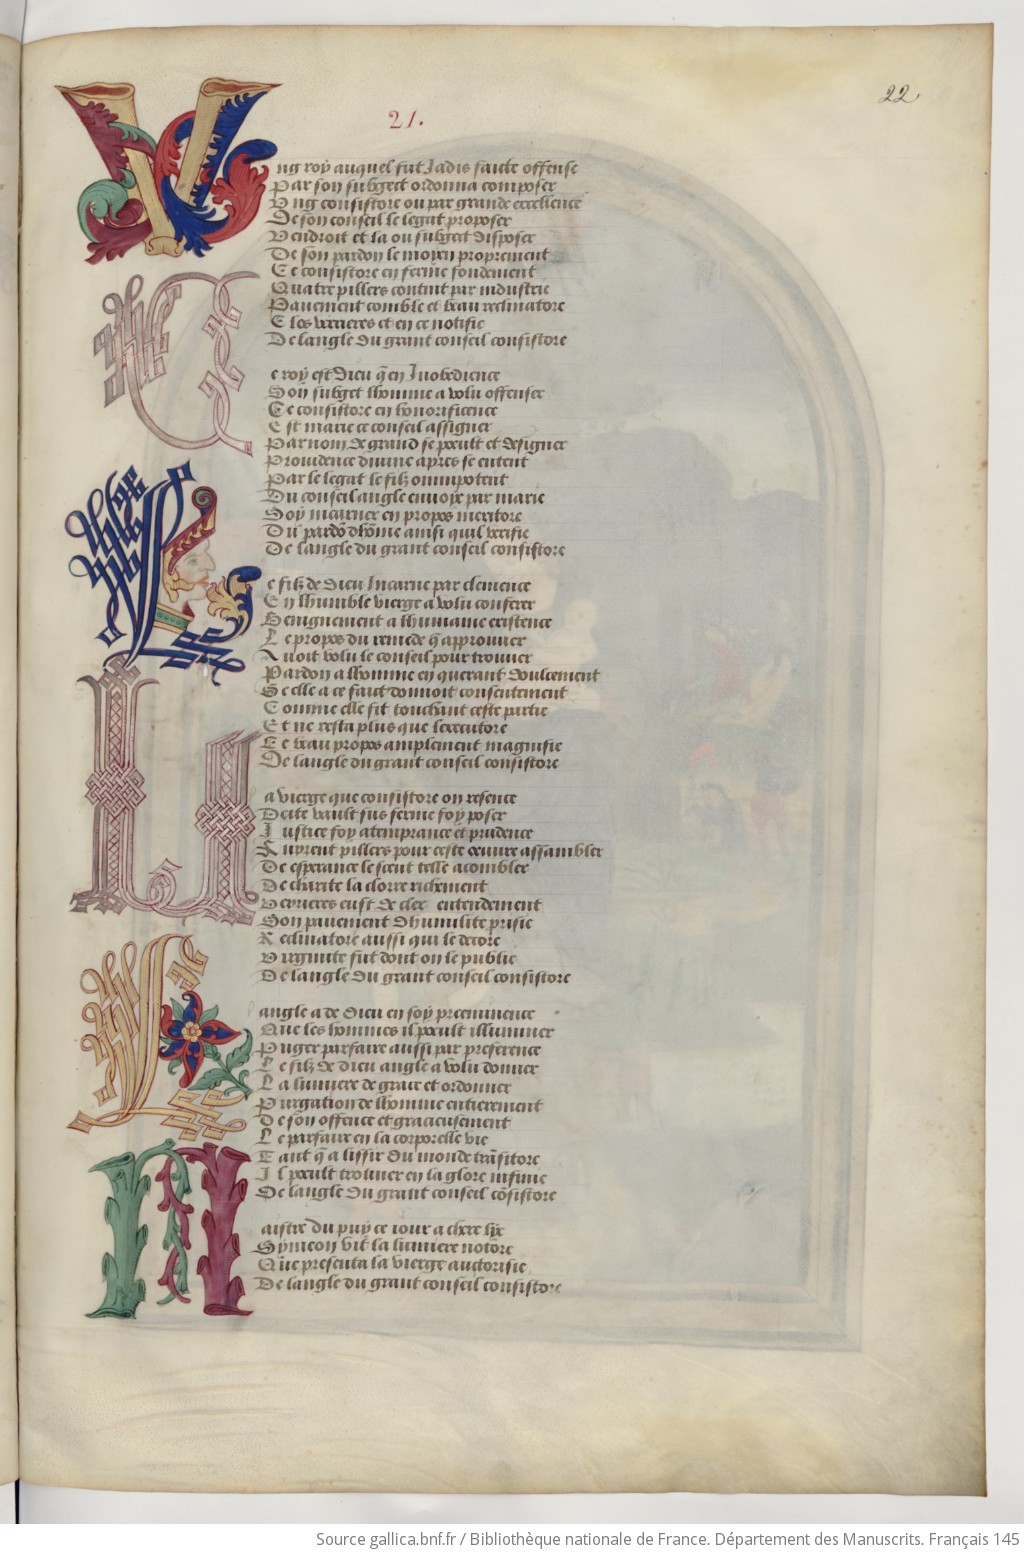 22
21.
Ung roy auquel fut Jadis faicte offense
Par son subgect ordonna composer
Ung consistore ou par grande excellence
De son conseil le legat proposer
Vendroit et la ou subgect disposer
De son pardon le moyen proprement
Ce consistore en ferme fondement
Quatre pillers contint par industrie
Pavement comble et beau reclinatore
E les verrieres et en ce notifie
De langle du grant conseil consistore
Ce roy est Dieu q̃ en Inobedience
Son subget lhomme a volu offenser
Ce consistore en honorificence
Est marie ce conseil assigner
Par nom de grand se peult et designer
Providence divine apres se entent
Par le legat le filz omnipotent
Du conseil angle envoye par marie
Soy incarner en propos meritore
Du pardõ dhõme ainsi quil verifie
De langle du grant conseil consistore
Le filz de Dieu Incarne par clemence
En lhumble vierge a volu conferer
Benignement a lhumaine existence
Le propos du remede q̃ approuver
Avoit volu le conseil pour trouver
Pardon a lhomme en querant doulcement
Se elle a ce faict donnoit consentement
Comme elle fit touchant ceste partie
Et ne resta plus que lexecutore
Ce beau propos amplement magnifie
De langle du grant conseil consistore
La vierge que consistore on resence
Deite vault sus ferme foy poser
Justice foy atemprance et prudence
Auprent pillers pour ceste oeuvre assambler
De esperance le sceut telle acombler
De charite la clorre richement
Verrieres eust de cler entendement
Son pavement Dhumilite prisie
Reclinatore aussi qui le decore
Virginite fut dont on le publie
De langle du grant conseil consistore
Langle a de Dieu en soy preeminence
Que les hommes il peult illuminer
Puger parfaire aussi par preference
Le filz de dieu angle a volu donner
La lumiere de grace et ordonner
Purgation de lhomme entierement
De son offence et gracieusement
Le parfaire en la corporelle vie
Tant q̃ a lissir du monde trãsitore
Il peult trouver en la glore infinie
De langle du grant conseil cõsistore
Maistre du puy ce iour a chere lye
Symeon vit la lumiere notore
Que presenta la vierge auctorisie
De langle du grant conseil consistore
Source gallica.bnf.fr / Bibliothèque nationale de France. Département des Manuscrits. Français 145